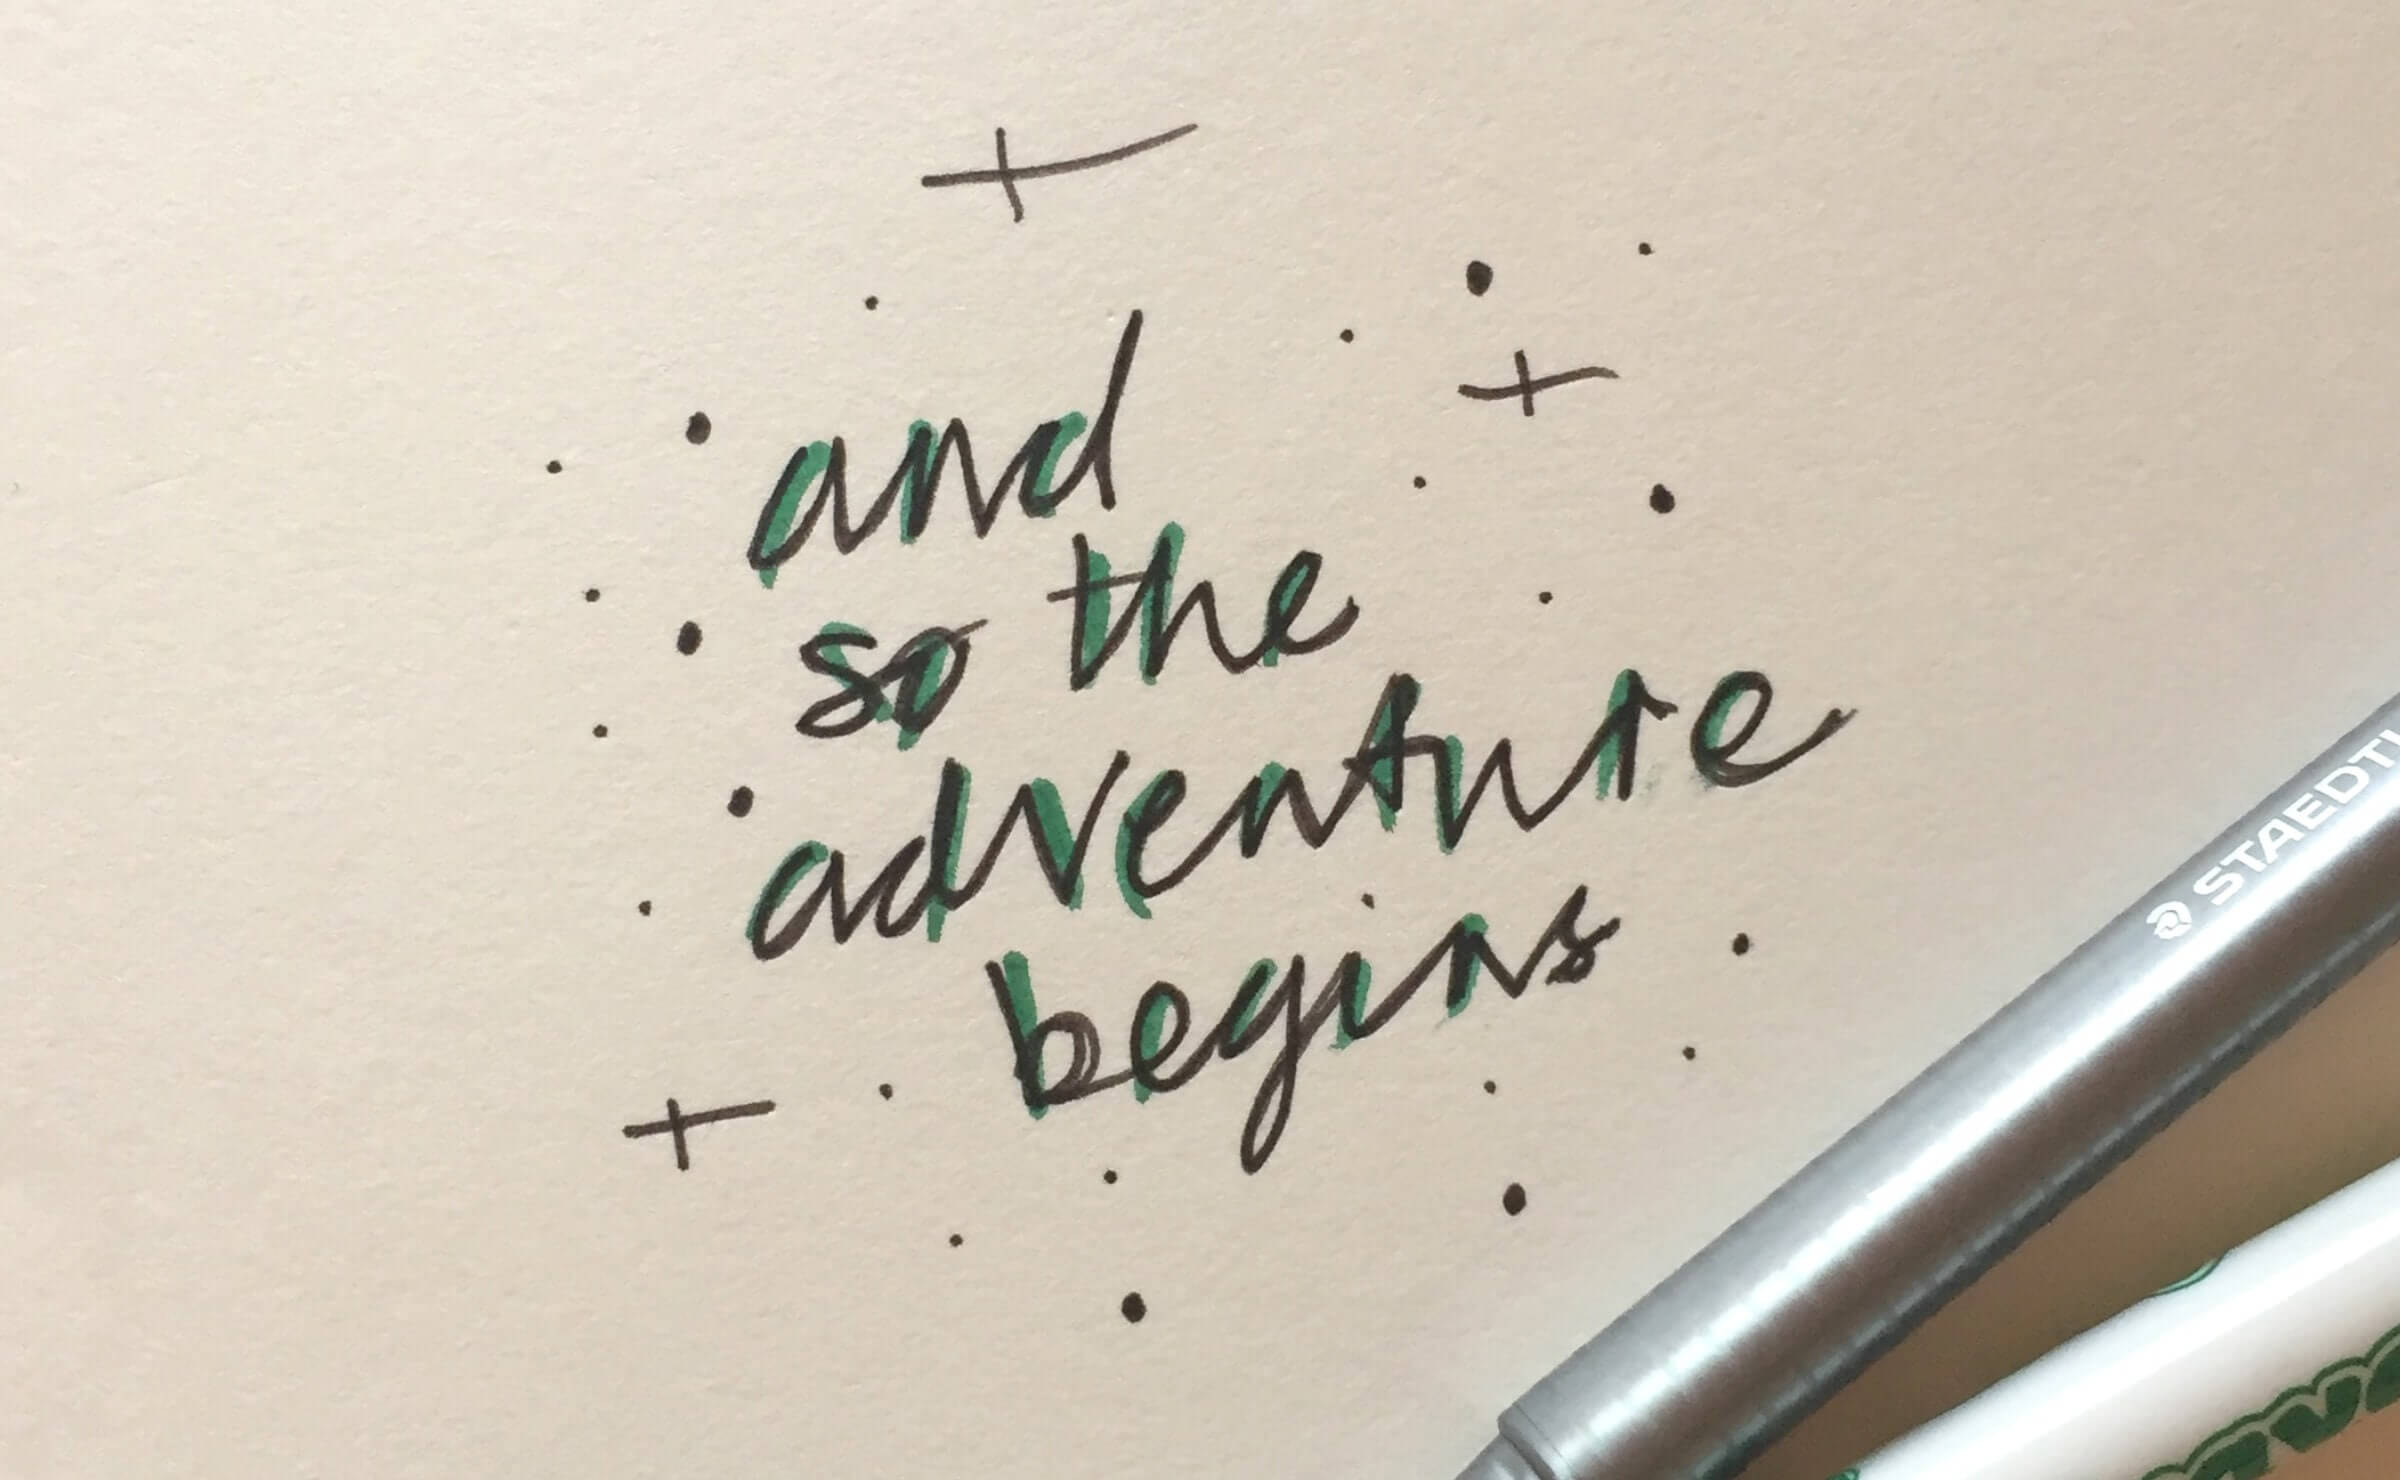 and
so the
adventure
begins
STAEDTL